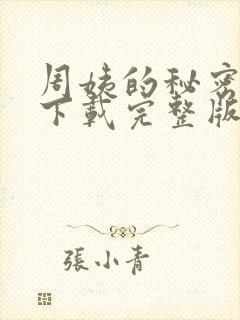 周姨的秘密
下載完整版
張小青